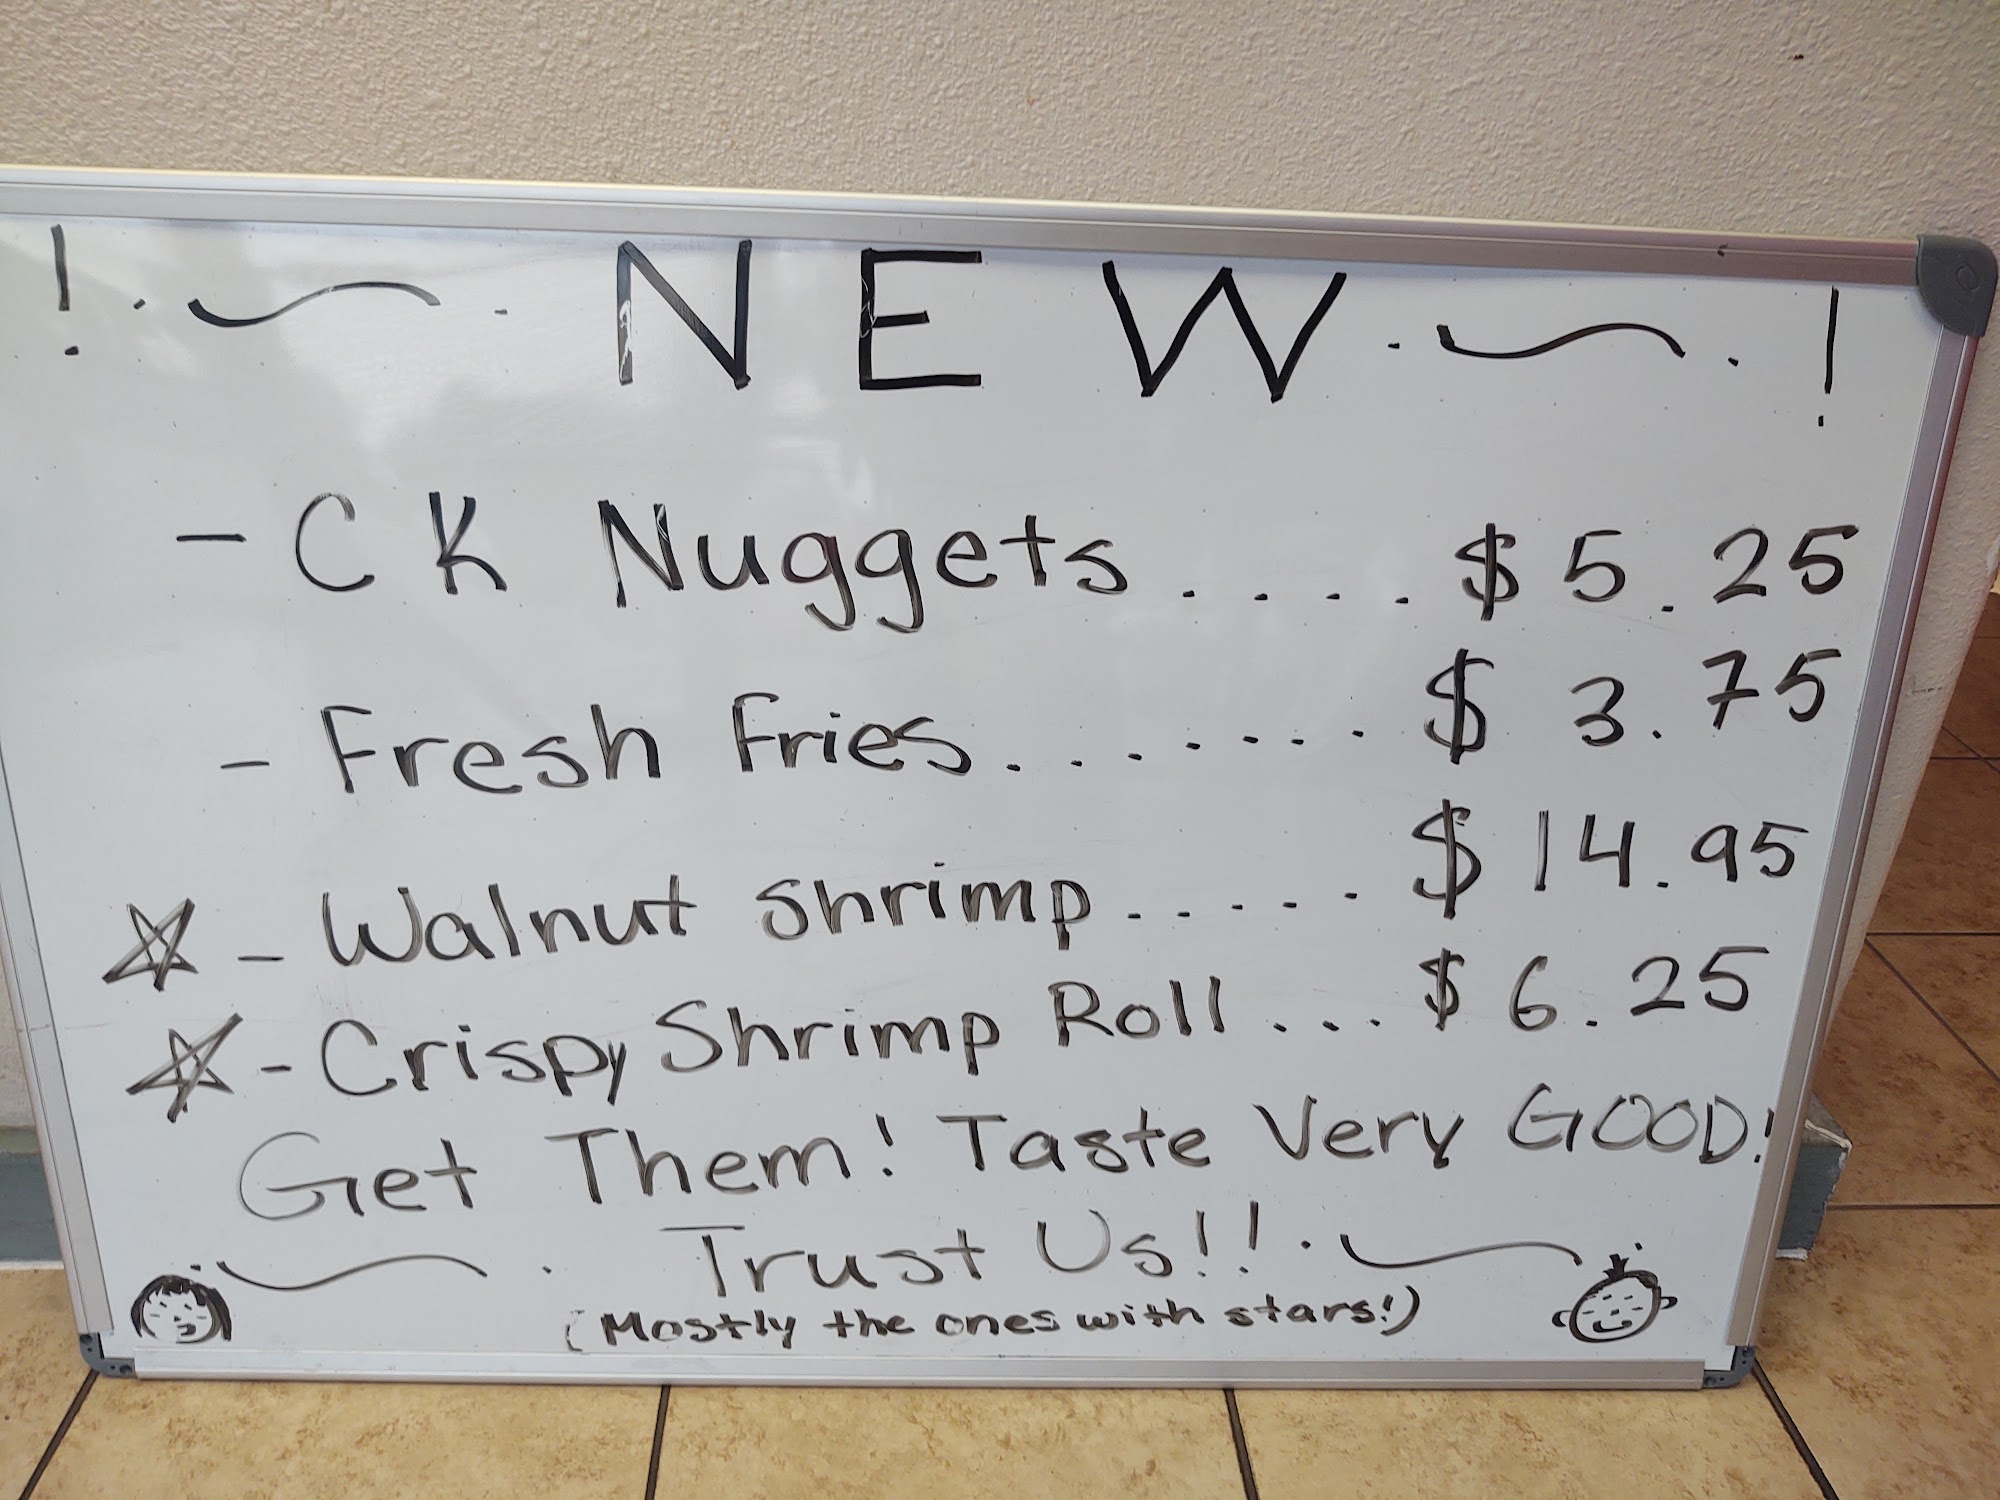 ! . ~ . NEW . ~ . !
- CK Nuggets .... $5.25
- Fresh Fries........ $3.75
☆ - Walnut Shrimp...... $14.95
☆ - Crispy Shrimp Roll ... $6.25
Get Them! Taste Very GOOD!
. ~ . Trust Us!! . ~ .
(Mostly the ones with stars!)